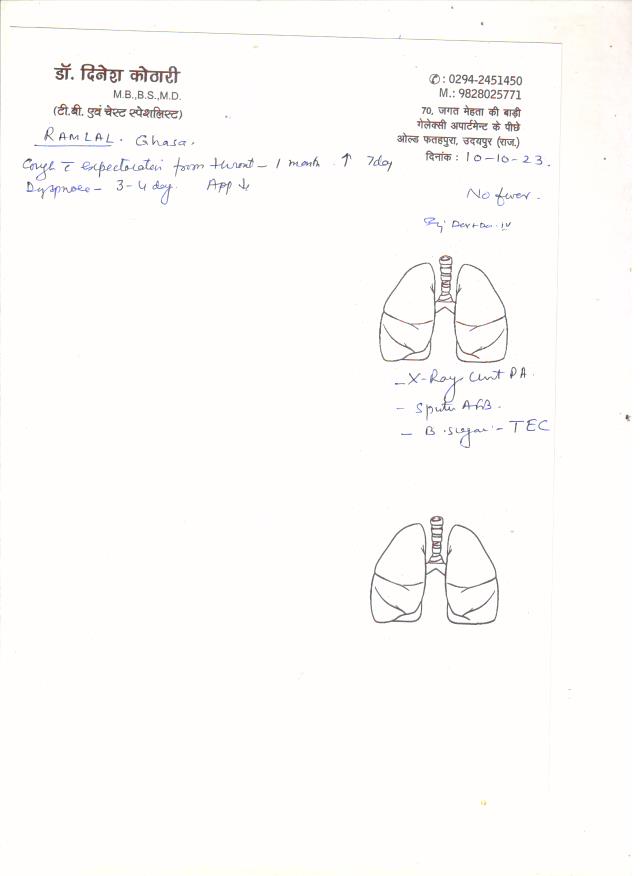 डॉ. दिनेश कोठारी
M.B.,B.S.,M.D.
(टी.बी. एवं चेस्ट स्पेशलिस्ट)
✆ : 0294-2451450
M.: 9828025771
70, जगत मेहता की बाड़ी
गेलेक्सी अपार्टमेन्ट के पीछे
ओल्ड फतहपुरा, उदयपुर (राज.)
दिनांक : 10-10-23.
RAMLAL. Ghasa.
Cough c̄ expectoration from throat - 1 month. ↑ 7day
Dyspnoea - 3-4 day. App ↓
No fever.
- X-Ray Chest PA.
- Sputum AFB.
- B. sugar - TEC